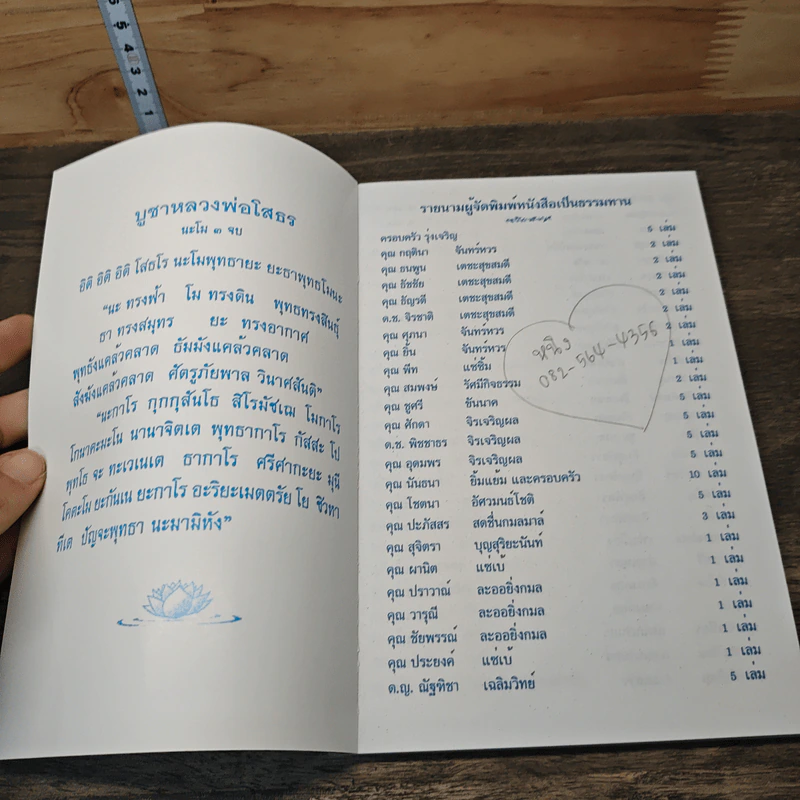 5 5 4 3 2 1
บูชาหลวงพ่อโสธร
นะโม ๓ จบ
อิติ อิติ อิติ โสธโร นะโมพุทธายะ ยะธาพุทธโมนะ
“นะ ทรงฟ้า โม ทรงดิน พุทธทรงสินธุ์
ธา ทรงสมุทร ยะ ทรงอากาศ
พุทธังแคล้วคลาด ธัมมังแคล้วคลาด
สังฆังแคล้วคลาด ศัตรูภัยพาล วินาศสันติ”
“นะกาโร กุกกุสันโธ สิโรมัชเฌ โมกาโร
โกนาคะมะโน นานาจิตเต พุทธากาโร กัสสะ โป
พุทโธ จะ ทะเวเนเต ธากาโร ศรีศากะยะ มุนี
โคตะโม ยะกันเน ยะกาโร อะริยะเมตตรัย โย ชิวหา
ทีเต ปัญจะพุทธา นะมามิหัง”
รายนามผู้จัดพิมพ์หนังสือเป็นธรรมทาน
ครอบครัว รุ่งเจริญ 5 เล่ม
คุณ กฤตินา จันทร์หวร 2 เล่ม
คุณ ธนพูน เตชะสุขสมดี 2 เล่ม
คุณ ธัชชัย เตชะสุขสมดี 2 เล่ม
คุณ ธัญรดี เตชะสุขสมดี 2 เล่ม
ด.ช. จิรชาติ เตชะสุขสมดี 2 เล่ม
คุณ ศุภนา จันทร์หวร 2 เล่ม
คุณ ยิ้น จันทร์หวร 1 เล่ม
คุณ พีท แซ่ซิ้ม 1 เล่ม
คุณ สมพงษ์ รัศมีกิจธรรม 2 เล่ม
คุณ ชูศรี ขันนาค 5 เล่ม
คุณ ศักดา จิรเจริญผล 5 เล่ม
ด.ช. พิชชาธร จิรเจริญผล 5 เล่ม
คุณ อุดมพร จิรเจริญผล 5 เล่ม
คุณ นันธนา ยิ้มแย้ม และครอบครัว 10 เล่ม
คุณ โชตนา อัศวมนธโชติ 5 เล่ม
คุณ ปะภัสสร สดชื่นกมลมาล์ 3 เล่ม
คุณ สุจิตรา บุญสุริยะนันท์ 1 เล่ม
คุณ ผานิต แซ่เบ๊ 1 เล่ม
คุณ ปราวาณ์ ละออยิ่งกมล 1 เล่ม
คุณ วารุณี ละออยิ่งกมล 1 เล่ม
คุณ ชัยพรรณ์ ละออยิ่งกมล 1 เล่ม
คุณ ประยงค์ แซ่เบ๊ 1 เล่ม
ด.ญ. ณัฐฑิชา เฉลิมวิทย์ 5 เล่ม
หนิง
082-564-4356